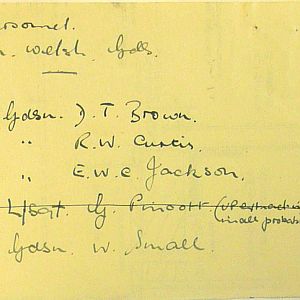 ersonnel.
n. Welsh Gds.
Gdsn. D. T. Brown.
" R. W. Curtis.
" E. W. C. Jackson.
L/Sgt. G. Pincott (VP extract
small probab
Gdsn. W. Small.